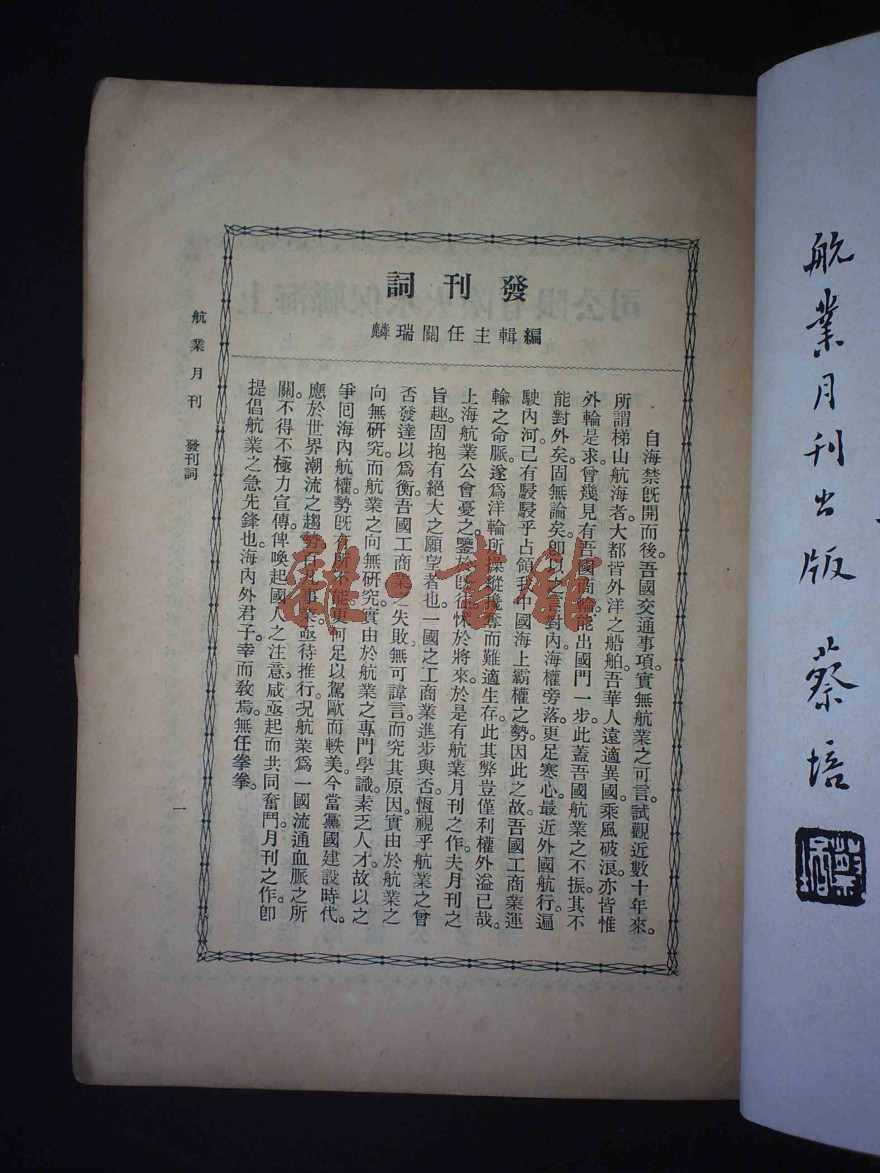 航業月刊出版 蔡培
發刊詞
編輯主任關瑞麟
自海禁旣開而後。吾國交通事項。實無航業之可言。試觀近數十年來。
所謂梯山航海者。大都皆外洋之船舶。吾華人遠適異國。乘風破浪。亦皆惟
外輪是求。曾幾見有吾國商輪。能出國門一步。此蓋吾國航業之不振。其不
能對外矣。固無論矣。卽以之言對內。海權旁落。更足寒心。最近外國航行。遍
駛內河。已有駸駸乎占領我中國海上霸權之勢。因此之故。吾國工商業運
輸之命脈。遂爲洋輪所操縱攙奪。而難適生存。此其弊豈僅利權外溢已哉。
上海航業公會憂之。鑒於旣往。怵於將來。於是有航業月刊之作。夫月刊之
旨趣。固抱有絕大之願望者也。一國之工商業進步與否。恆視乎航業之曾
否發達以爲衡。吾國工商業之失敗。無可諱言。而究其原因。實由於航業之
向無研究。而航業之向無研究。實由於航業之專門學識。素乏人才。故以之
爭囘海內航權。勢旣有所不能。更何足以駕歐而軼美。今當黨國建設時代。
應於世界潮流之趨勢。百凡事業。亟待推行。況航業爲一國流通血脈之所
關。不得不極力宣傳。俾喚起國人之注意。咸亟起而共同奮鬥。月刊之作。卽
提倡航業之急先鋒也。海內外君子。幸而敎焉。無任拳拳。
航業月刊 發刊詞
一